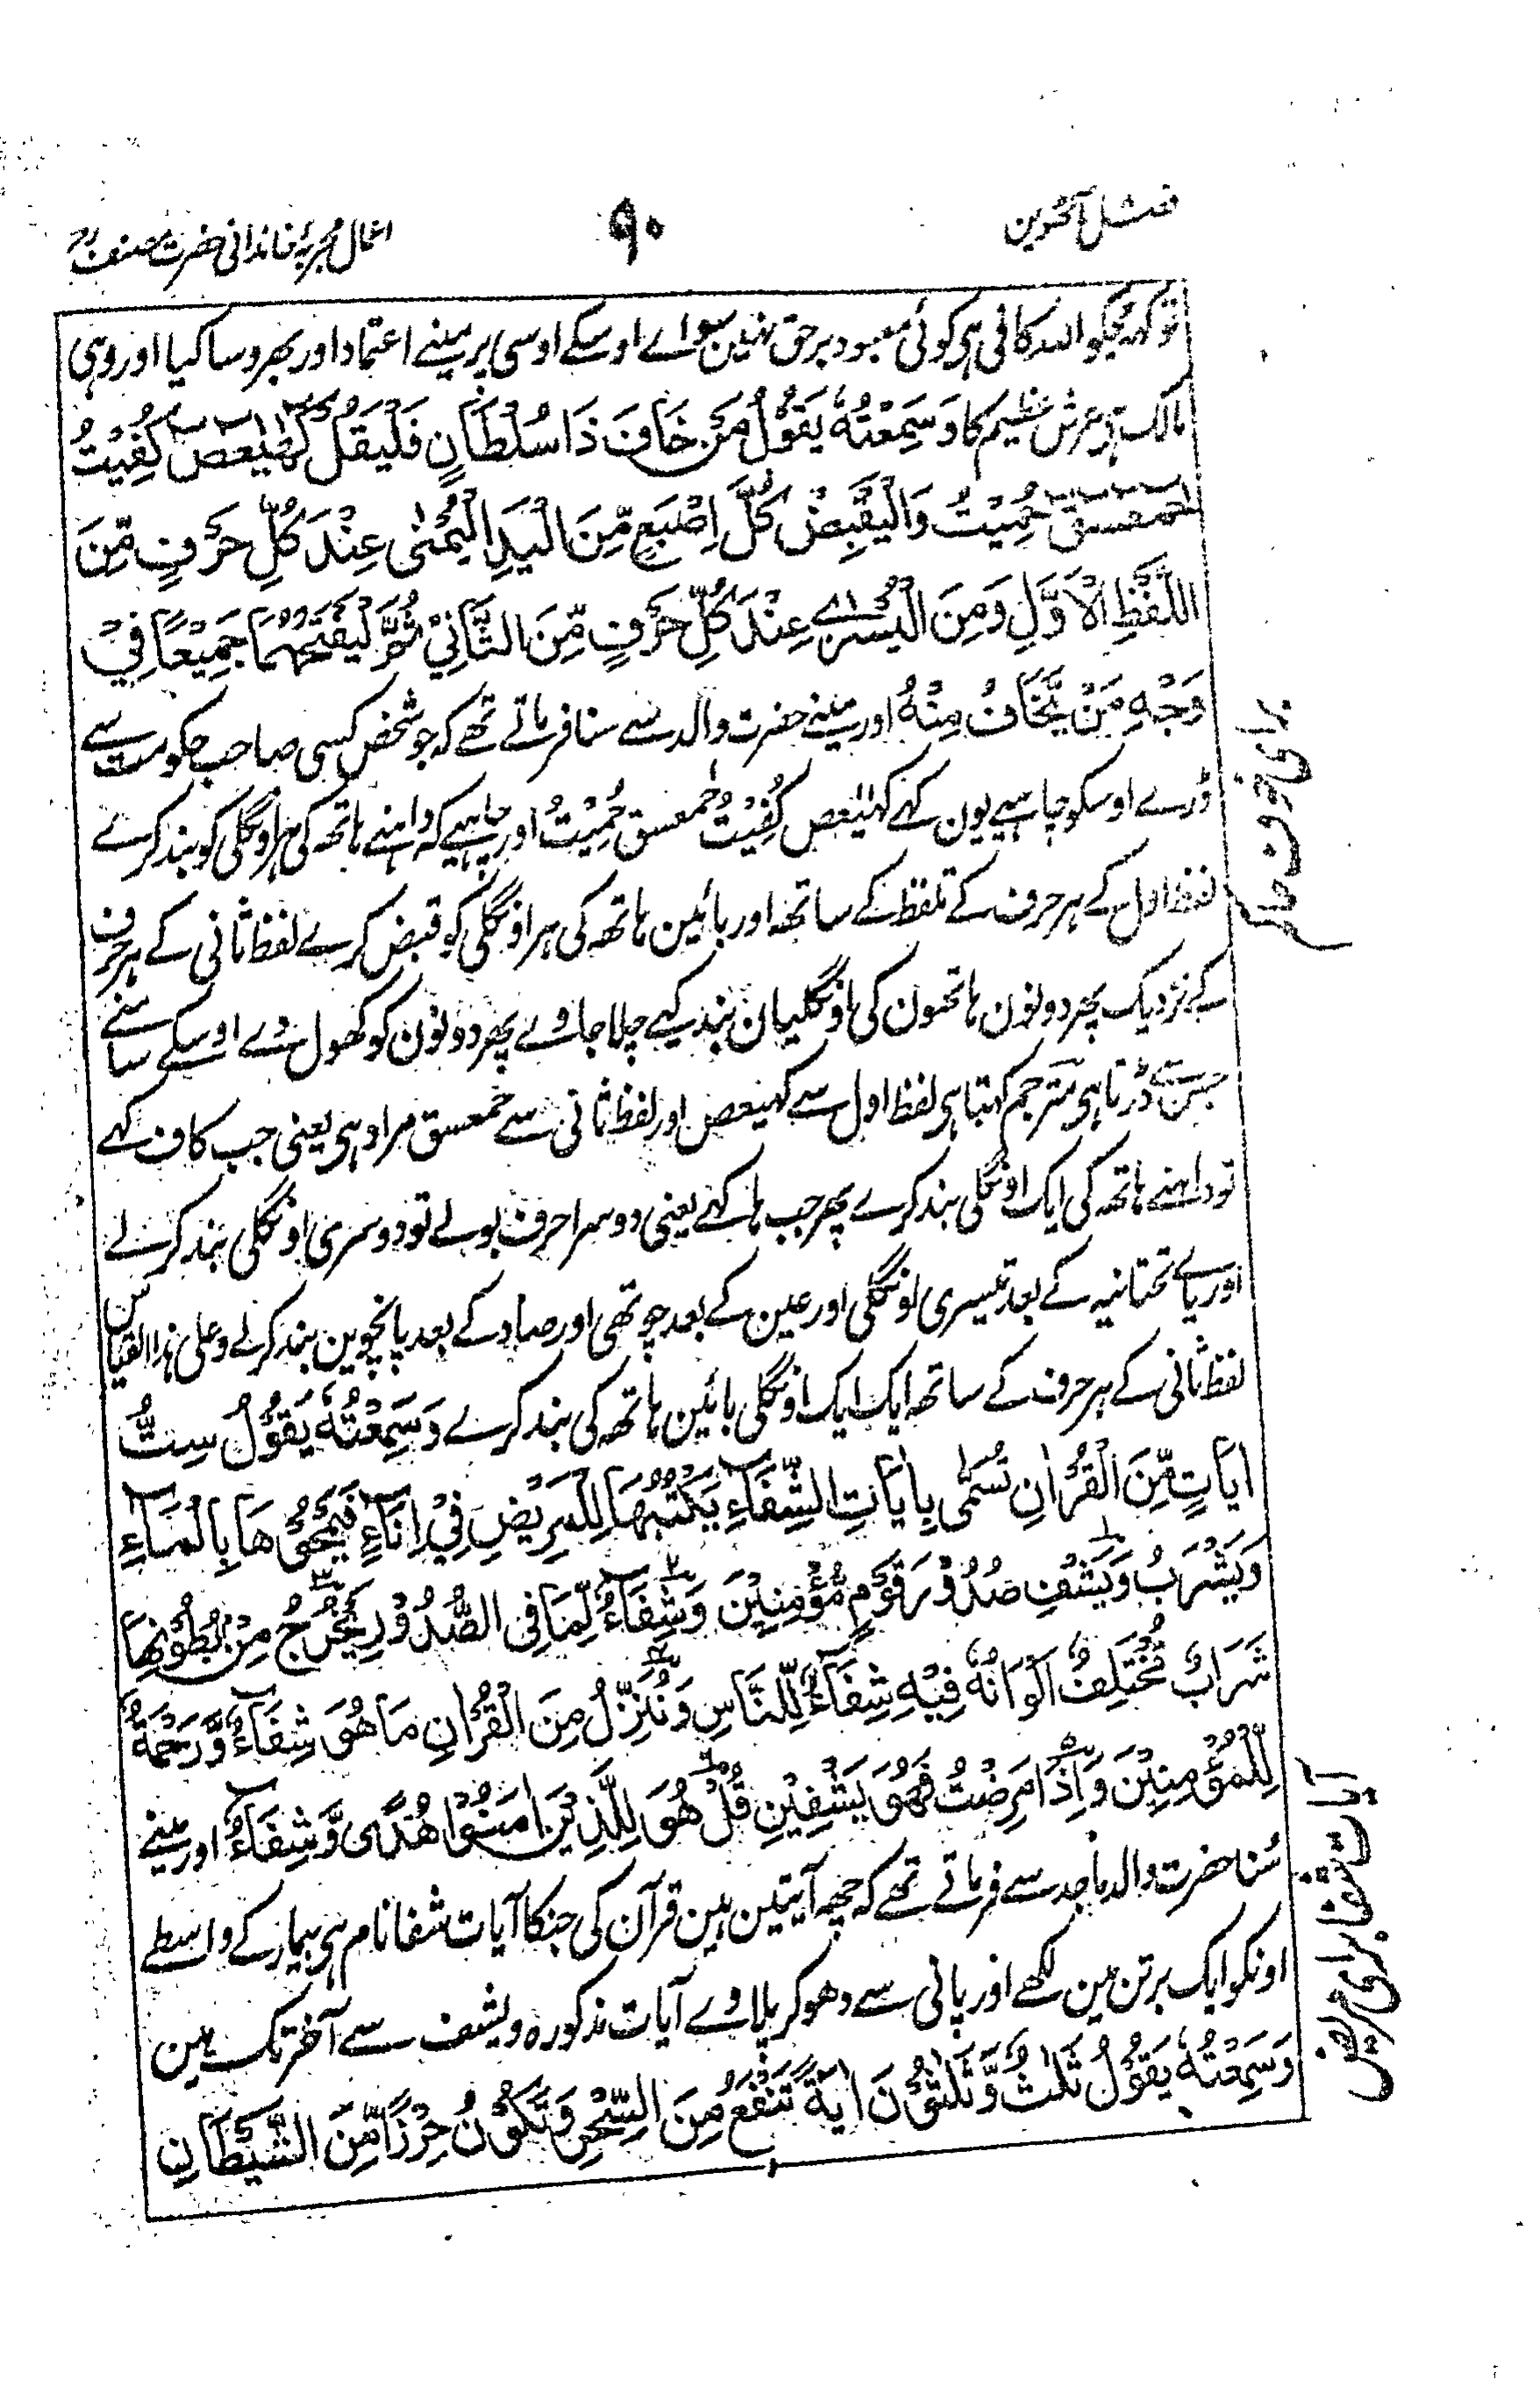 فصل آٹھوین
۹۰
اعمال مجربہ خاندانی حضرت مصنف رح
تو کہہ مجکو اللہ کافی ہی کوئی معبود برحق نہین سواے اوسکے اوسی پر مینے اعتماد اور بھروسا کیا اور وہی
مالک ہی عرش عظیم کا وَسَمِعْتُهٗ يَقُوْلُ مَنْ خَافَ ذَا سُلْطَانٍ فَلْيَقُلْ كٓهٰيٰعٓصٓ كُفِيْتُ
حٰمٓعٓسٓقٓ حُمِيْتُ وَالْيَقْبِضْ كُلَّ اِصْبَعٍ مِّنَ الْيَدِ الْيُمْنٰى عِنْدَ كُلِّ حَرْفٍ مِّنَ
اللَّفْظِ الْاَوَّلِ وَمِنَ الْيُسْرٰے عِنْدَ كُلِّ حَرْفٍ مِّنَ الثَّانِيْ ثُمَّ لْيَفْتَحْهُمَا جَمِيْعًا فِيْ
وَجْهِ مَنْ يَّخَافُ مِنْهُ اور مینے حضرت والد سے سنا فرماتے تھے کہ جو شخص کسی صاحب حکومت سے
ڈرے اوسکو چاہیے یون کہے کہیعص كُفِيْتُ حٰمعسق حُمِيْتُ اور چاہیے کہ داہنے ہاتھ کی ہر اونگلی کو بند کرے
لفظ اول کے ہر حرف کے تلفظ کے ساتھ اور بائین ہاتھ کی ہر اونگلی کو قبض کرے لفظ ثانی کے ہر حرف
کے نزدیک پھر دونون ہاتھون کی اونگلیان بند کیے چلا جاوے پھر دونون کو کھول دے اوسکے سامنے
جس سے ڈرتا ہی مترجم کہتا ہی لفظ اول سے کہیعص اور لفظ ثانی سے حمعسق مراد ہی یعنی جب کاف کہے
تو داہنے ہاتھ کی ایک اونگلی بند کرے پھر جب ہا کہے یعنی دوسرا حرف بولے تو دوسری اونگلی بند کرلے
اور یاے تحتانیہ کے بعد تیسری اونگلی اور عین کے بعد چوتھی اور صاد کے بعد پانچوین بند کرلے وعلی ہذا القیاس
لفظ ثانی کے ہر حرف کے ساتھ ایک ایک اونگلی بائین ہاتھ کی بند کرے وَسَمِعْتُهٗ يَقُوْلُ سِتُّ
اٰيَاتٍ مِّنَ الْقُرْاٰنِ تُسَمّٰى بِاٰيَاتِ الشِّفَآءِ يَكْتُبُهَا لِلْمَرِيْضِ فِيْ اِنَآءٍ فَيَمْحُوْهَا بِالْمَآءِ
وَيَشْرَبُ وَيَشْفِ صُدُوْرَ قَوْمٍ مُّؤْمِنِيْنَ وَشِفَآءٌ لِّمَا فِى الصُّدُوْرِ يَخْرُجُ مِنْ بُطُوْنِهَا
شَرَابٌ مُّخْتَلِفٌ اَلْوَانُهٗ فِيْهِ شِفَآءٌ لِّلنَّاسِ وَنُنَزِّلُ مِنَ الْقُرْاٰنِ مَا هُوَ شِفَآءٌ وَّرَحْمَةٌ
لِّلْمُؤْمِنِيْنَ وَاِذَا مَرِضْتُ فَهُوَ يَشْفِيْنِ قُلْ هُوَ لِلَّذِيْنَ اٰمَنُوْا هُدًى وَّشِفَآءٌ اور مینے
سُنا حضرت والد ماجد سے فرماتے تھے کہ چھہ آیتین ہین قرآن کی جنکا آیات شفا نام ہی بیمار کے واسطے
اونکو ایک برتن مین لکھے اور پانی سے دھو کر پلاوے آیات مذکورہ ویشف سے آخر تک ہین
وَسَمِعْتُهٗ يَقُوْلُ ثَلٰثٌ وَّثَلٰثُوْنَ اٰيَةً تَنْفَعُ مِنَ السِّحْرِ وَتَكُوْنُ حِرْزًا مِّنَ الشَّيْطَانِ
برای خوف حاکم
آیات شفا برای مریض